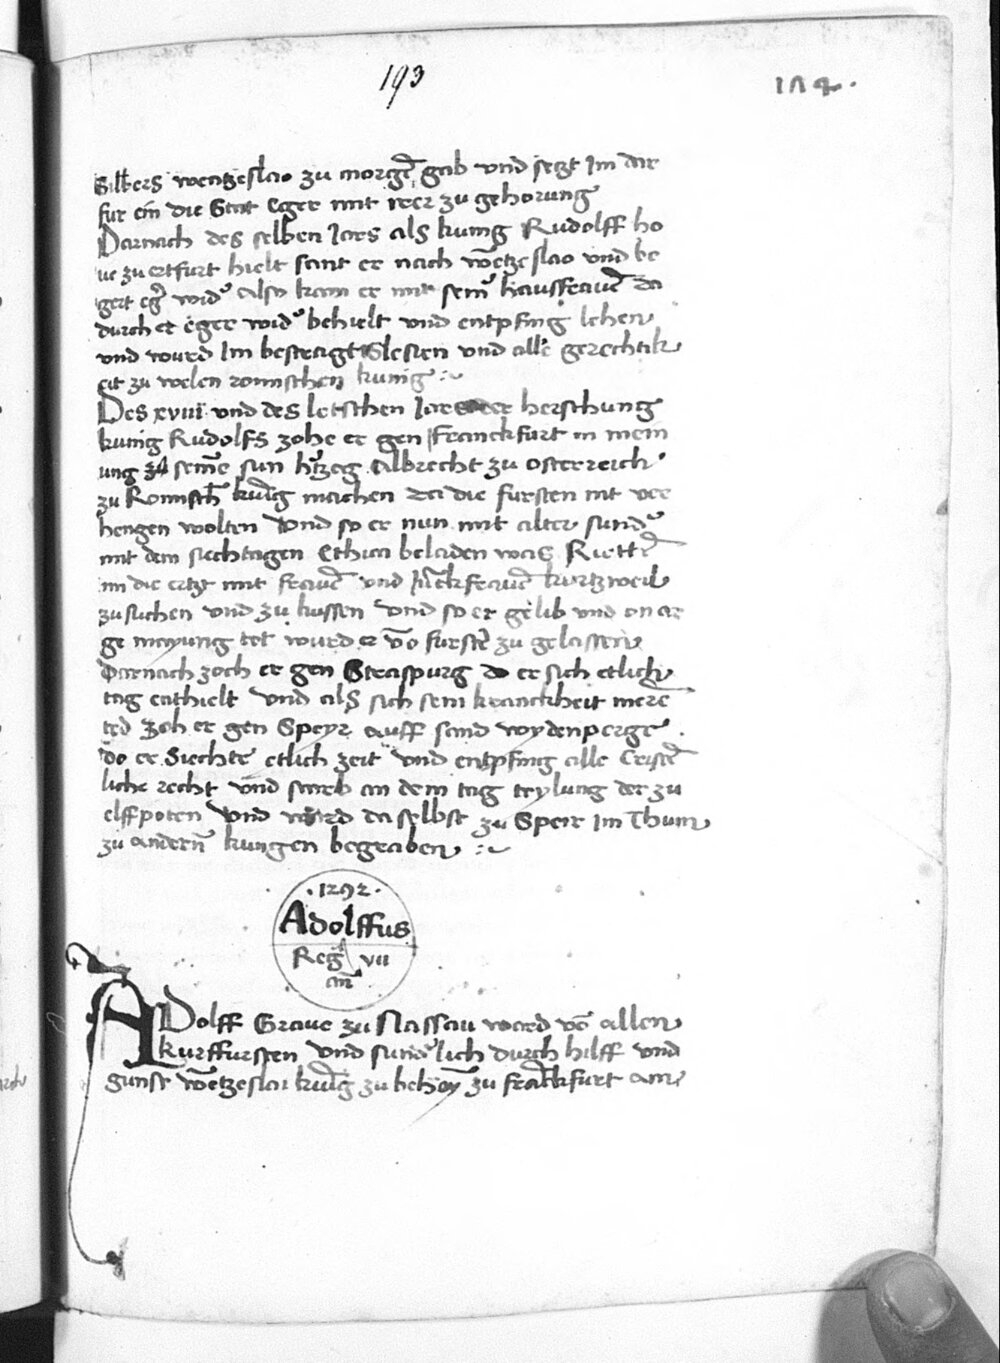 193
184.
Silbers wentzeslao zu morgē gab vnd setzt Im dar
fur ein die Stat Eger mit irer zu gehorung
Darnach des selben Jars als kunig Rudolff ho
ue zu ertfurt hielt sant er nach wētzeslao vnd be
gert eg̃ wid᾽ also kam er mit sein᾽ hausfrauē da
durch er eger wid᾽ behielt vnd entpfing lehen
vnd wurd Im bestetigt Slesien vnd alle gerechtik
eit zu welen romischen kunig :~
Des xviii vnd des letschen Jars der herschung
kunig Rudolfs zohe er gen Franckfurt in mein
ung zu seinē sun h᾽tzog Albrecht zu osterreich
zu Romisch̄ kuīg machen da die fursten nit ver
hengen wolten Vnd so er nun mit alter sund᾽
mit dem siechtagen Ethica beladen was Riettē
im die ertzt mit frauē vnd Jūckfrauē kurtzweil
zu suchen vnd zu kussen vnd so er gelib vnd on ar
ge meynung tet wurd er vō furstē zu gelassen
Darnach zoch er gen Straspurg do er sich etlich
tag enthielt Vnd als sich sein kranckheit merē
ted Zoh er gen Speyr auff sand wydenperge
do er Siechte etlich zeit vnd entpfing alle Cristē
liche recht vnd starb an dem tag teylung der zu
elffpoten Vnd ward daselbst zu Speir Im Thum
zu andern̄ kungen begraben :~
·1292·
Adolffus
Reg̃ vii
añ
ADolff Graue zu Nassau ward vō allen
kurffursten Vnd sund᾽lich durch hilff vnd
gunst wētzeslai kuīg zu behēy zu frāckfurt am